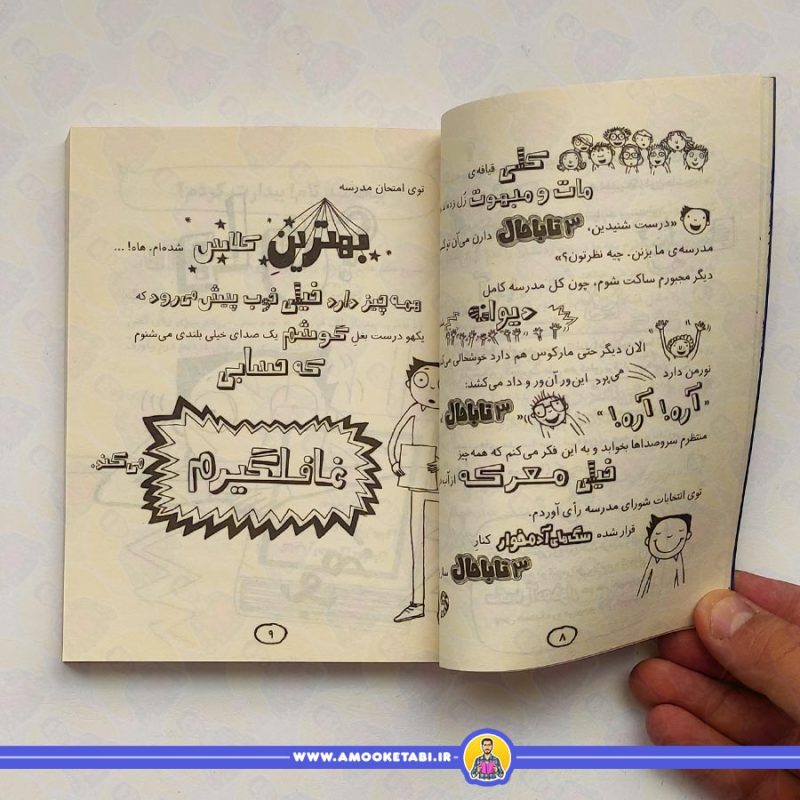 کلّی قیافه‌ی
مات و مبهوت زل زده
«درست شنیدین، ۳ تا باحال دارن می‌آن تو
مدرسه‌ی ما بزنن. چیه نظرتون؟»
دیگر مجبورم ساکت شوم، چون کل مدرسه کامل
دیوانه
الان دیگر حتی مارکوس هم دارد خوشحالی
نورمن دارد می‌پرد این‌ور آن‌ور و داد می‌کشد:
«آره! آره!» «۳ تا باحال
منتظرم سروصداها بخوابد و به این فکر می‌کنم که همه‌چیز
خیلی معرکه از آب
توی انتخابات شورای مدرسه رأی آوردم.
قرار شده سگ‌های آدمخوار کنار
۳ تا باحال
۸
توی امتحان مدرسه
بهترین کلاس شده‌ام. هاه! ...
همه چیز دارد خیلی خوب پیش می‌رود که
یکهو درست بغل گوشم یک صدای خیلی بلندی می‌شنوم
که حسابی
غافلگیرم
می‌کند.
۹
WWW.AMOOKETABI.IR